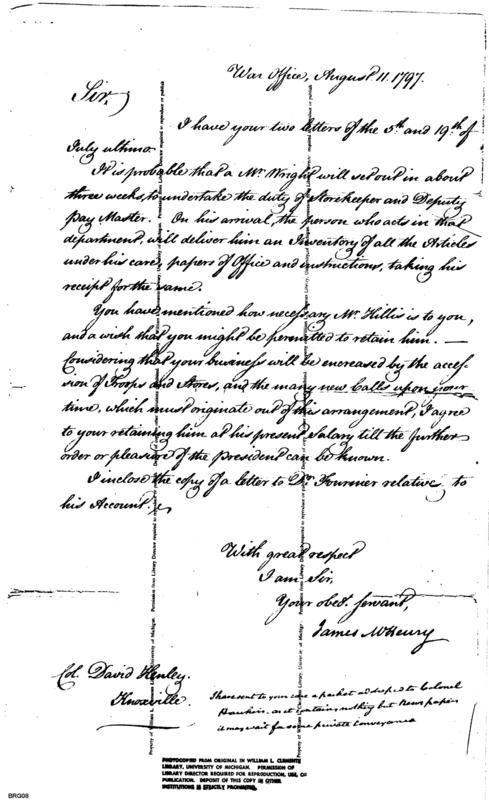 War Office, August 11. 1797.
Sir,
I have your two letters of the 5th and 19th of
July ultimo.
It is probable that a Mr. Wright will set out in about
three weeks, to undertake the duty of Storekeeper and Deputy
Pay Master. On his arrival, the person who acts in that
department, will deliver him an Inventory of all the Articles
under his care, papers of Office and instructions, taking his
receipt for the same.
You have mentioned how necessary Mr. Hillis is to you,
and a wish that you might be permitted to retain him. —
Considering that your business will be encreased by the acces-
sion of Troops and Stores, and the many new Calls upon your
time, which must originate out of this arrangement, I agree
to your retaining him at his present Salary till the further
order or pleasure of the President can be known.
I inclose the copy of a letter to Dr. Fournier relative to
his Account.
With great respect
I am Sir,
Your obedt. servant,
James McHenry
Col. David Henley.
Knoxville.
I have sent to your care a packet addressed to Colonel
Hawkins. as it contains nothing but News papers
it may wait for some private conveyance
Property of William L. Clements Library, University of Michigan. Permission from Library Director required to reproduce or publish
PHOTOCOPIED FROM ORIGINAL IN WILLIAM L. CLEMENTS
LIBRARY, UNIVERSITY OF MICHIGAN. PERMISSION OF
LIBRARY DIRECTOR REQUIRED FOR REPRODUCTION, USE, OR
PUBLICATION. DEPOSIT OF THIS COPY IN OTHER
INSTITUTIONS IS STRICTLY PROHIBITED.
BRG08